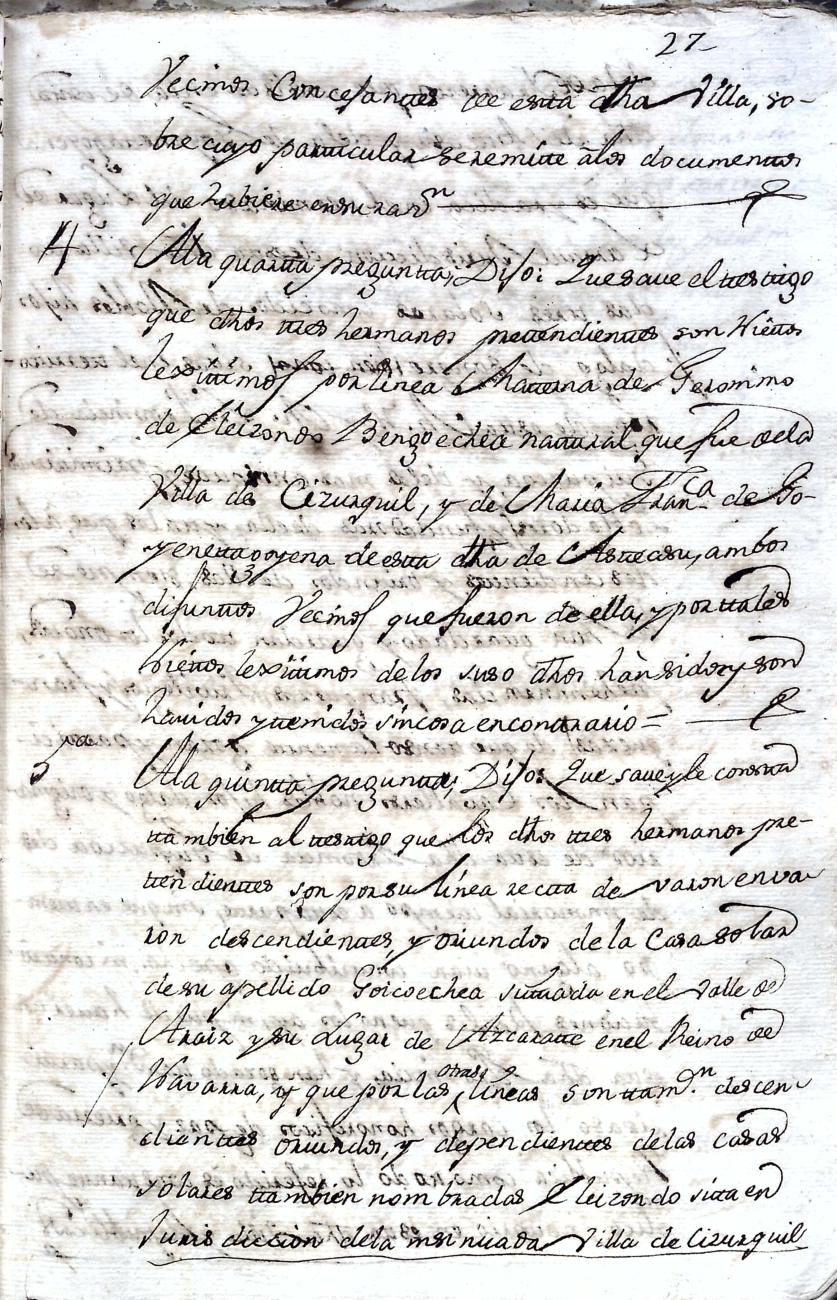 27
Vecinos Concejantes de esta dha Villa, so-
bre cuyo particular se remite â los documentos
que hubiere en su razⁿ
4
A la quarta pregunta, Dijo: Que save el testigo
que dhos tres hermanos pretendientes son Nietos
lexitimos por linea Materna de Geronimo
de Eleizondo Bengoechea natural que fue de la
Villa de Cizurquil, y de Maria Franca de Go-
yeneta oryena de esta dha de Asteasu, ambos
difuntos Vecinos que fueron de ella, y por tales
Nietos lexitimos de los suso dhos hàn sido y son
havidos y tenidos sin cosa en contrario =
5a
A la quinta pregunta, Dijo: Que save y le consta
tambien al testigo que los dhos tres hermanos pre-
tendientes son por su linea recta de varon en va-
ron descendientes, y oriundos de la Casa solar
de su apellido Goicoechea situada en el Valle de
Araiz y su Lugar de Azcarate en el Reino de
Navarra, y que por las otras lineas son tamⁿ descen-
dientes oriundos, y dependientes de las casas
solares tambien nombradas Eleizondo sita en
Jurisdiccion de la insinuada Villa de Cizurquil